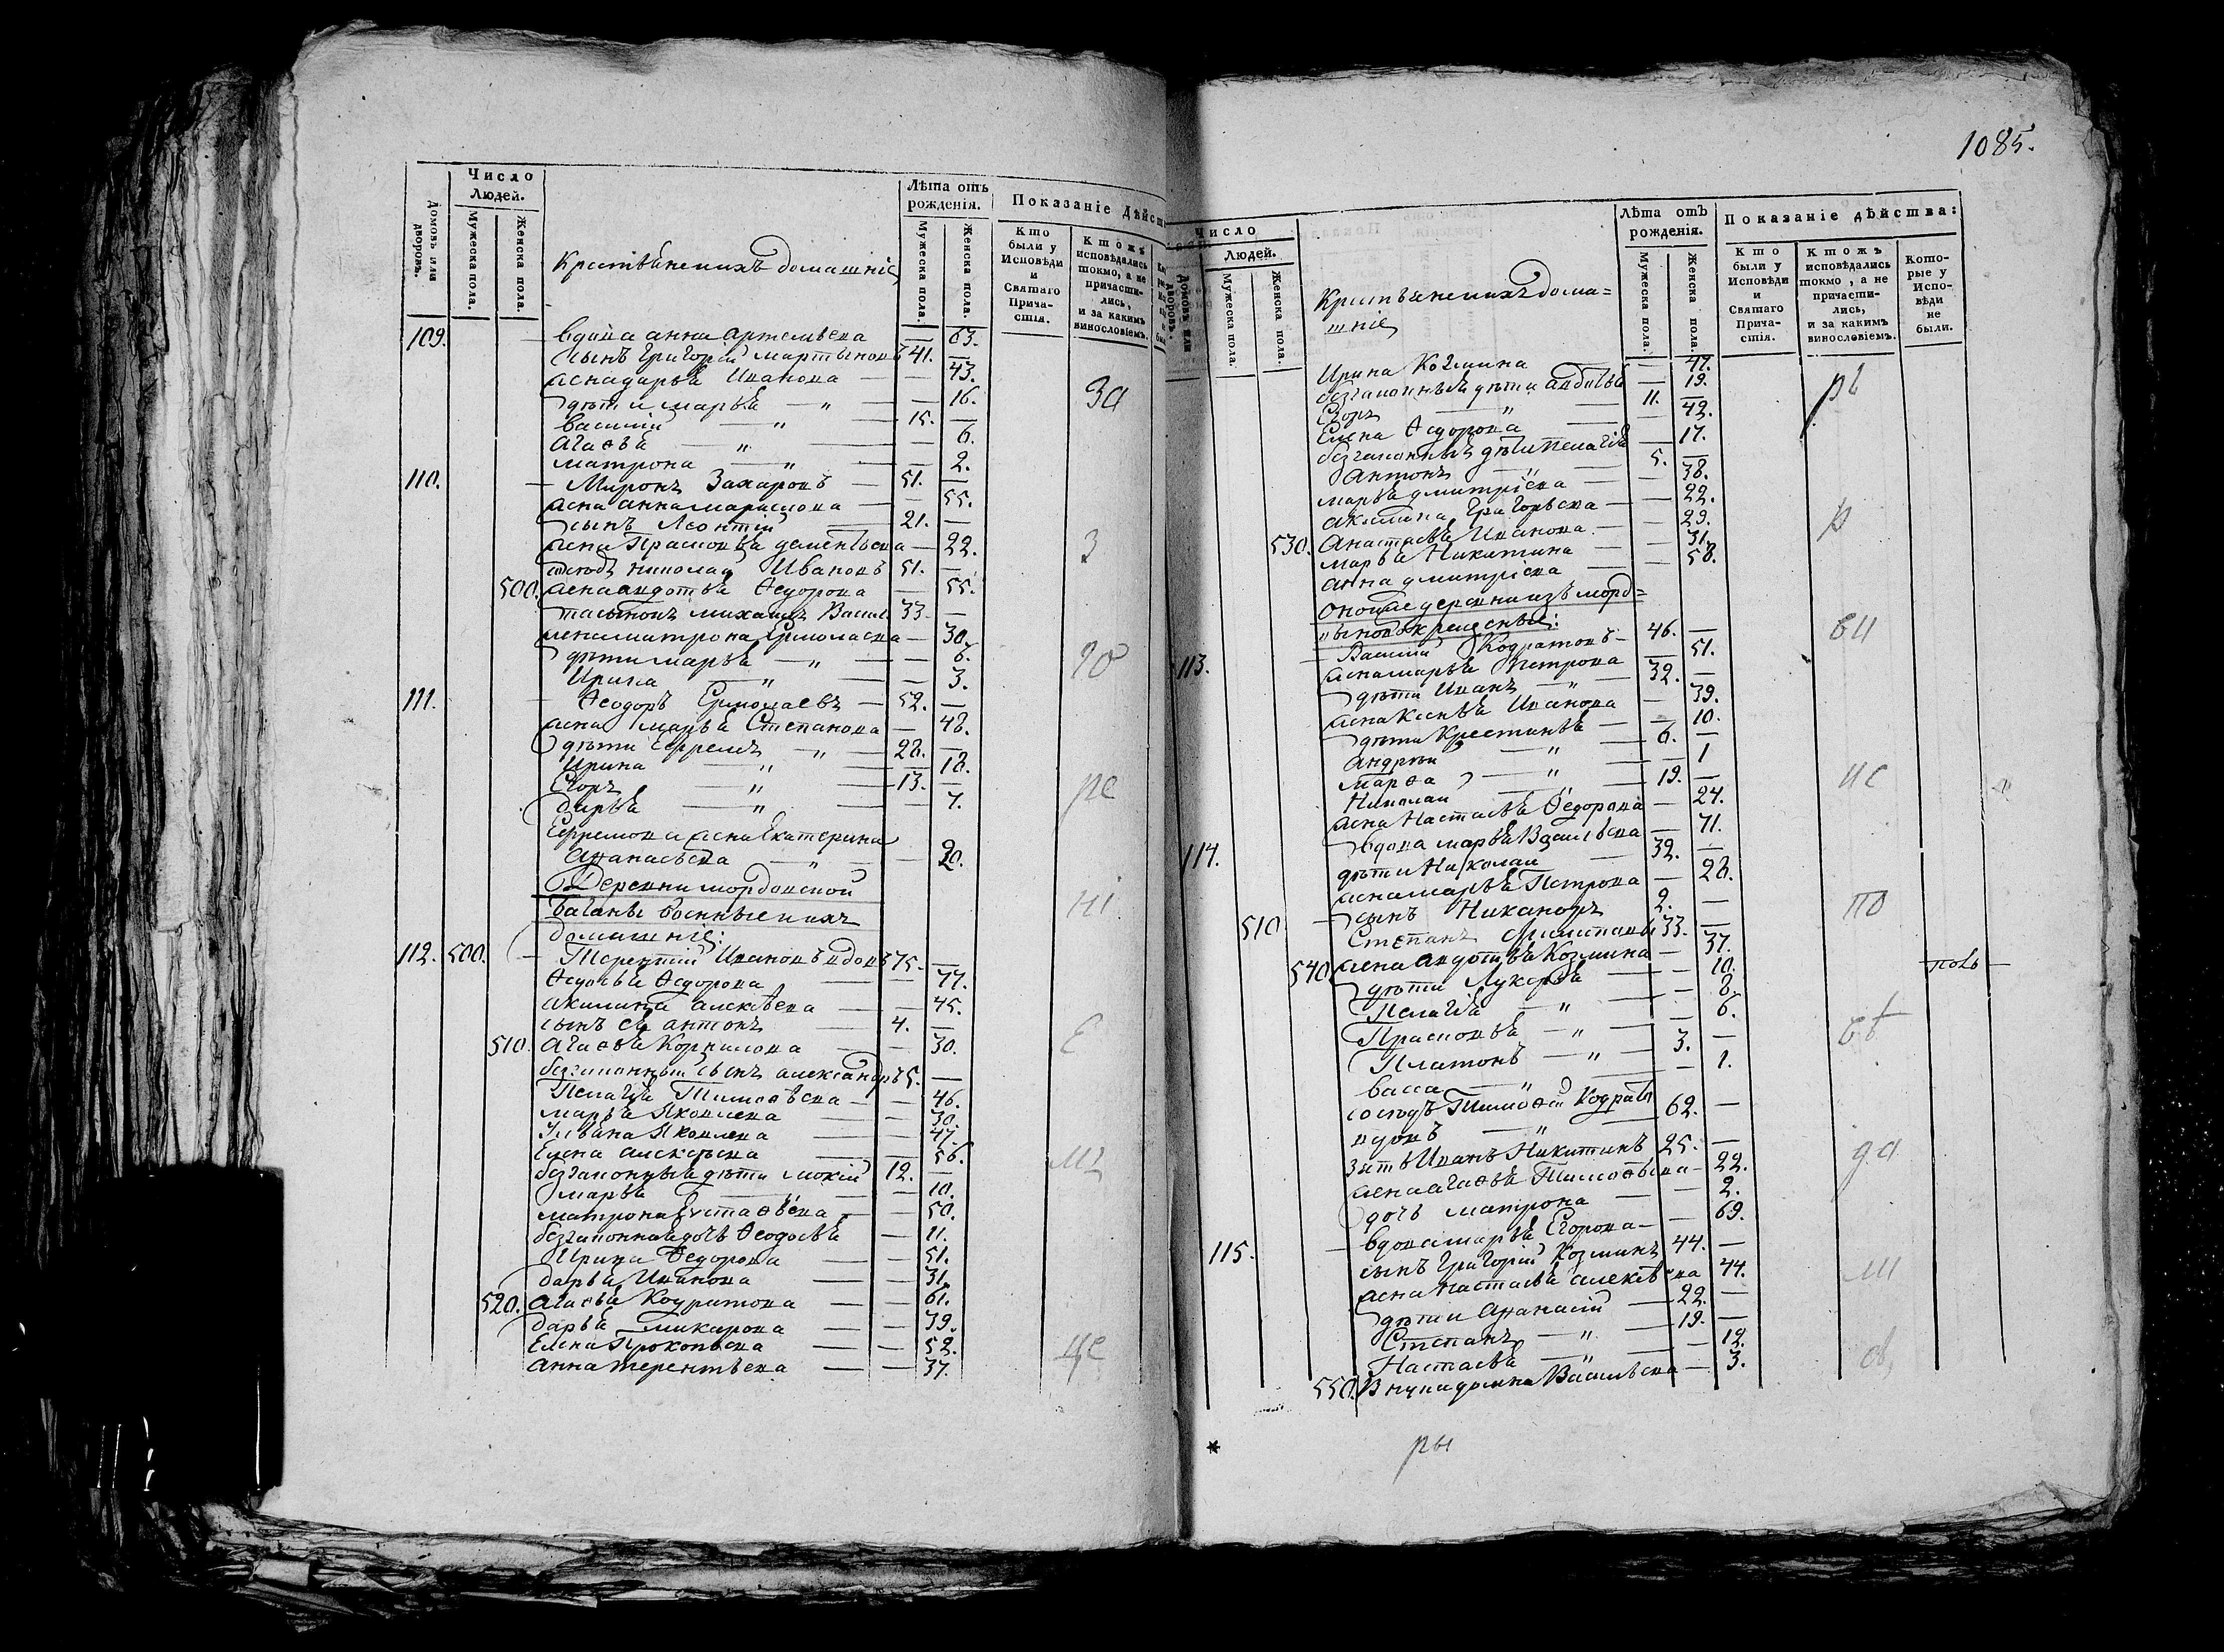 Домовъ или дворовъ.
Число Людей.
Мужеска пола.
Женска пола.
Крестьяне и ихъ домашніе
Лѣта отъ рожденія.
Мужеска пола.
Женска пола.
Показаніе дѣйст
Кто были у Исповѣди и Святаго Прича-стія.
Ктожъ исповѣдались токмо, а не причасти-лись, и за какимъ винословіемъ.
109. вдова анна артемьева — 63.
сынъ Григорій мартыновъ 41. —
жена дарья Иванова — 43.
дѣти марья — " — 16.
василій — " — 15. —
Агафья — " — 6.
матрона — " — 2.
За
110. Миронъ Захаровъ — 51. —
жена анна — 55.
сынъ Леонтій 21. —
жена Прасковья дементьева — 22.
З
сосѣдъ николай Ивановъ 51. —
500. жена авдотья Ѳедорова — 55.
пасынокъ михаилъ Васил 33. —
жена матрона Ермолаева — 30.
дѣти марья — " — 6.
Ирина — " — 3.
го
111. Ѳеодоръ Ермолаевъ — 52. —
жена марья Степанова — 48.
дѣти Ефремъ — " — 28. —
Ирина — " — 18.
Егоръ — " — 13. —
дарья — " — 7.
ре
Ефремова жена Екатерина
Афанасьева — " — 20.
Деревни мордовской
военные и ихъ
домашніе:
ні
112. 500. Терентій Ивановъ вдовъ 75. —
Ѳедосья Ѳедорова — 77.
акилина алексѣева — 45.
сынъ ея антонъ 4. —
510. Агафья Корнилова — 30.
е
беззаконный сынъ александръ 5. —
Пелагія Тимоѳѣева — 46.
марья Яковлева — 30.
Ульяна Яковлева — 47.
Елена алексѣева — 56.
мъ
беззаконныя дѣти мокій 12. —
марья — " — 10.
матрона Евстафьева — 50.
беззаконная дочь Ѳеодосья — 11.
Ирина Ѳедорова — 51.
дарья Иванова — 31.
520. Агафья Кодратова — 61.
дарья макарова — 39.
Елена Прокопьева — 52.
анна терентьева — 37.
це
1085.
Домовъ или дворовъ.
Число Людей.
Мужеска пола.
Женска пола.
Крестьяне и ихъ дома=
шніе
Лѣта отъ рожденія.
Мужеска пола.
Женска пола.
Показаніе дѣйства:
Кто были у Исповѣди и Святаго Прича-стія.
Ктожъ исповѣдались токмо, а не причасти-лись, и за какимъ винословіемъ.
Кото-рые у Испо-вѣди не были.
Ирина Козмина — 47.
беззаконныя дѣти авдотья — 19.
Егоръ — " — 11. —
Елена Ѳедорова — 42.
беззаконныя дѣти Пелагія — 17.
Антонъ — " — 5. —
марья дмитріева — 38.
акилина Григорьева — 22.
530. Анастасья Иванова — 29.
марья Никитина — 31.
анна дмитріева — 58.
р
Оной же деревни изъ морд=
вы новокрещеные:
113. Василій Кодратовъ — 46. —
жена марья Петрова — 51.
дѣти Иванъ — " — 32. —
жена Иванова — 39.
ви
дѣти Крестинья — 10.
андрѣй — " — 6. —
марѳа — " — 1
Николай — " — 19. —
жена Настасья Ѳедорова — 24.
ис
114. вдова марья Васильева — 71.
дѣти Николай 32. —
жена марья Петрова — 28.
510 сынъ Никаноръ 2. —
Степанъ 33. —
по
540 жена авдотья Козмина — 37.
дѣти Лукерья — 10.
Пелагія — " — 8.
Прасковья — " — 6.
Платонъ — " — 3. —
васса — " — 1.
сосѣдъ Тимоѳей Кодратъ
вдовъ — " — 62. —
зять Иванъ Никитинъ 25. —
жена агафья Тимоѳѣева — 22.
дочь матрона — 2.
да
115. вдова марья Егорова — 69.
сынъ Григорій Козминъ 44. —
жена настасья алексѣева 44.
дѣти афанасій — 22. —
Степанъ — " — 19. —
Настасья — " — 12.
550. Внука домна Васильева — 3.
ми
*
ры